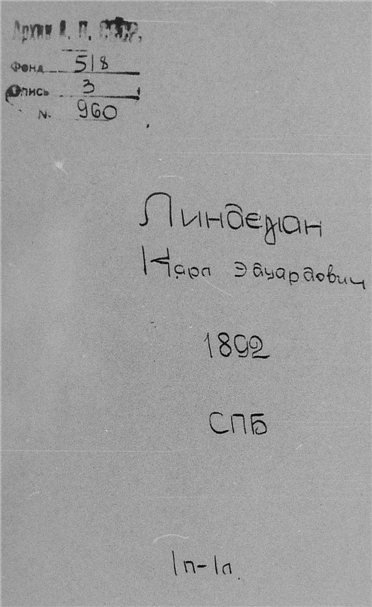 Архив А. Н. СССР.
Фонд 518
Опись 3
N. 960
Линдеман
Карл Эдуардович
1892
СПБ
1п-1л.